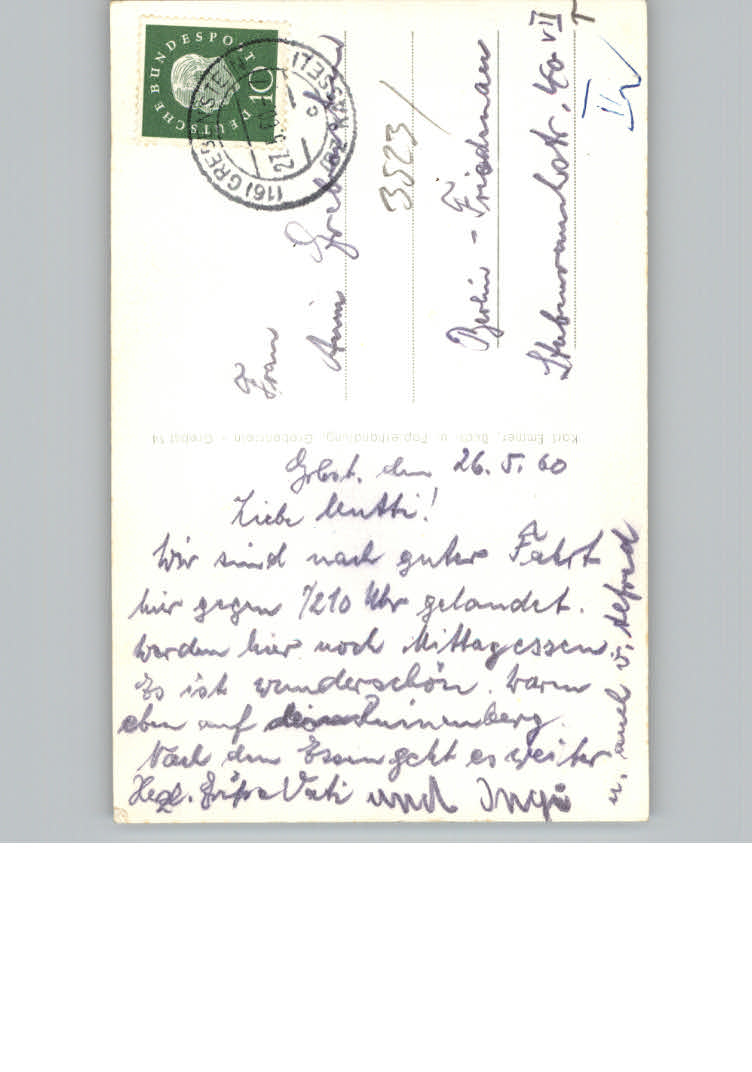 DEUTSCHE BUNDESPOST
10
DEUTSCHE
(16) GREBENSTEIN
(BZ. KASSEL)
27.5.60
Frau
Anni
3523/
Berlin - Friedenau
40 VII
IV
Karl Emmer, Buch- u. Papierhandlung, Grebenstein
Grbst. den 26.5.60
Liebe Mutti!
Wir sind nach guter Fahrt
hier gegen 1/210 Uhr gelandet.
Werden hier noch Mittagessen.
Es ist wunderschön. Waren
eben auf Ruinenberg.
Nach dem Essen geht es weiter
Herzl. Grüße Vati und Inge
u. auch v. Alfred